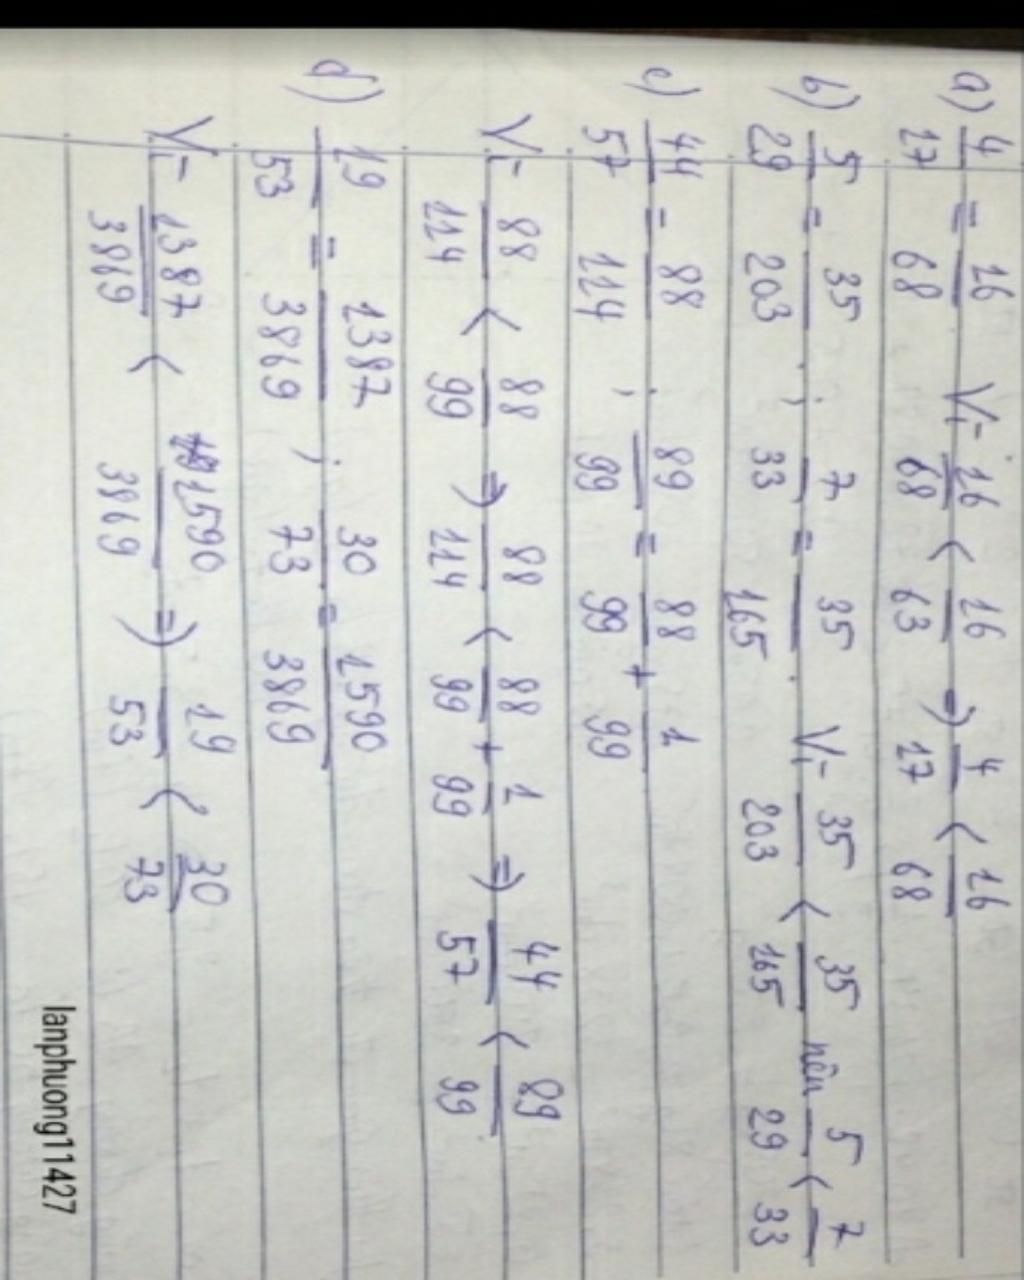 a) 4/17 = 16/68 Vì 16/68 < 16/63 => 4/17 < 16/68
b) 5/29 = 35/203 ; 7/33 = 35/165 . Vì 35/203 < 35/165 nên 5/29 < 7/33
c) 44/57 = 88/114 ; 89/99 = 88/99 + 1/99
Vì 88/114 < 88/99 => 88/114 < 88/99 + 1/99 => 44/57 < 89/99
d) 19/53 = 1387/3869 ; 30/73 = 1590/3869
Vì 1387/3869 < 1590/3869 => 19/53 < 30/73
lanphuong11427